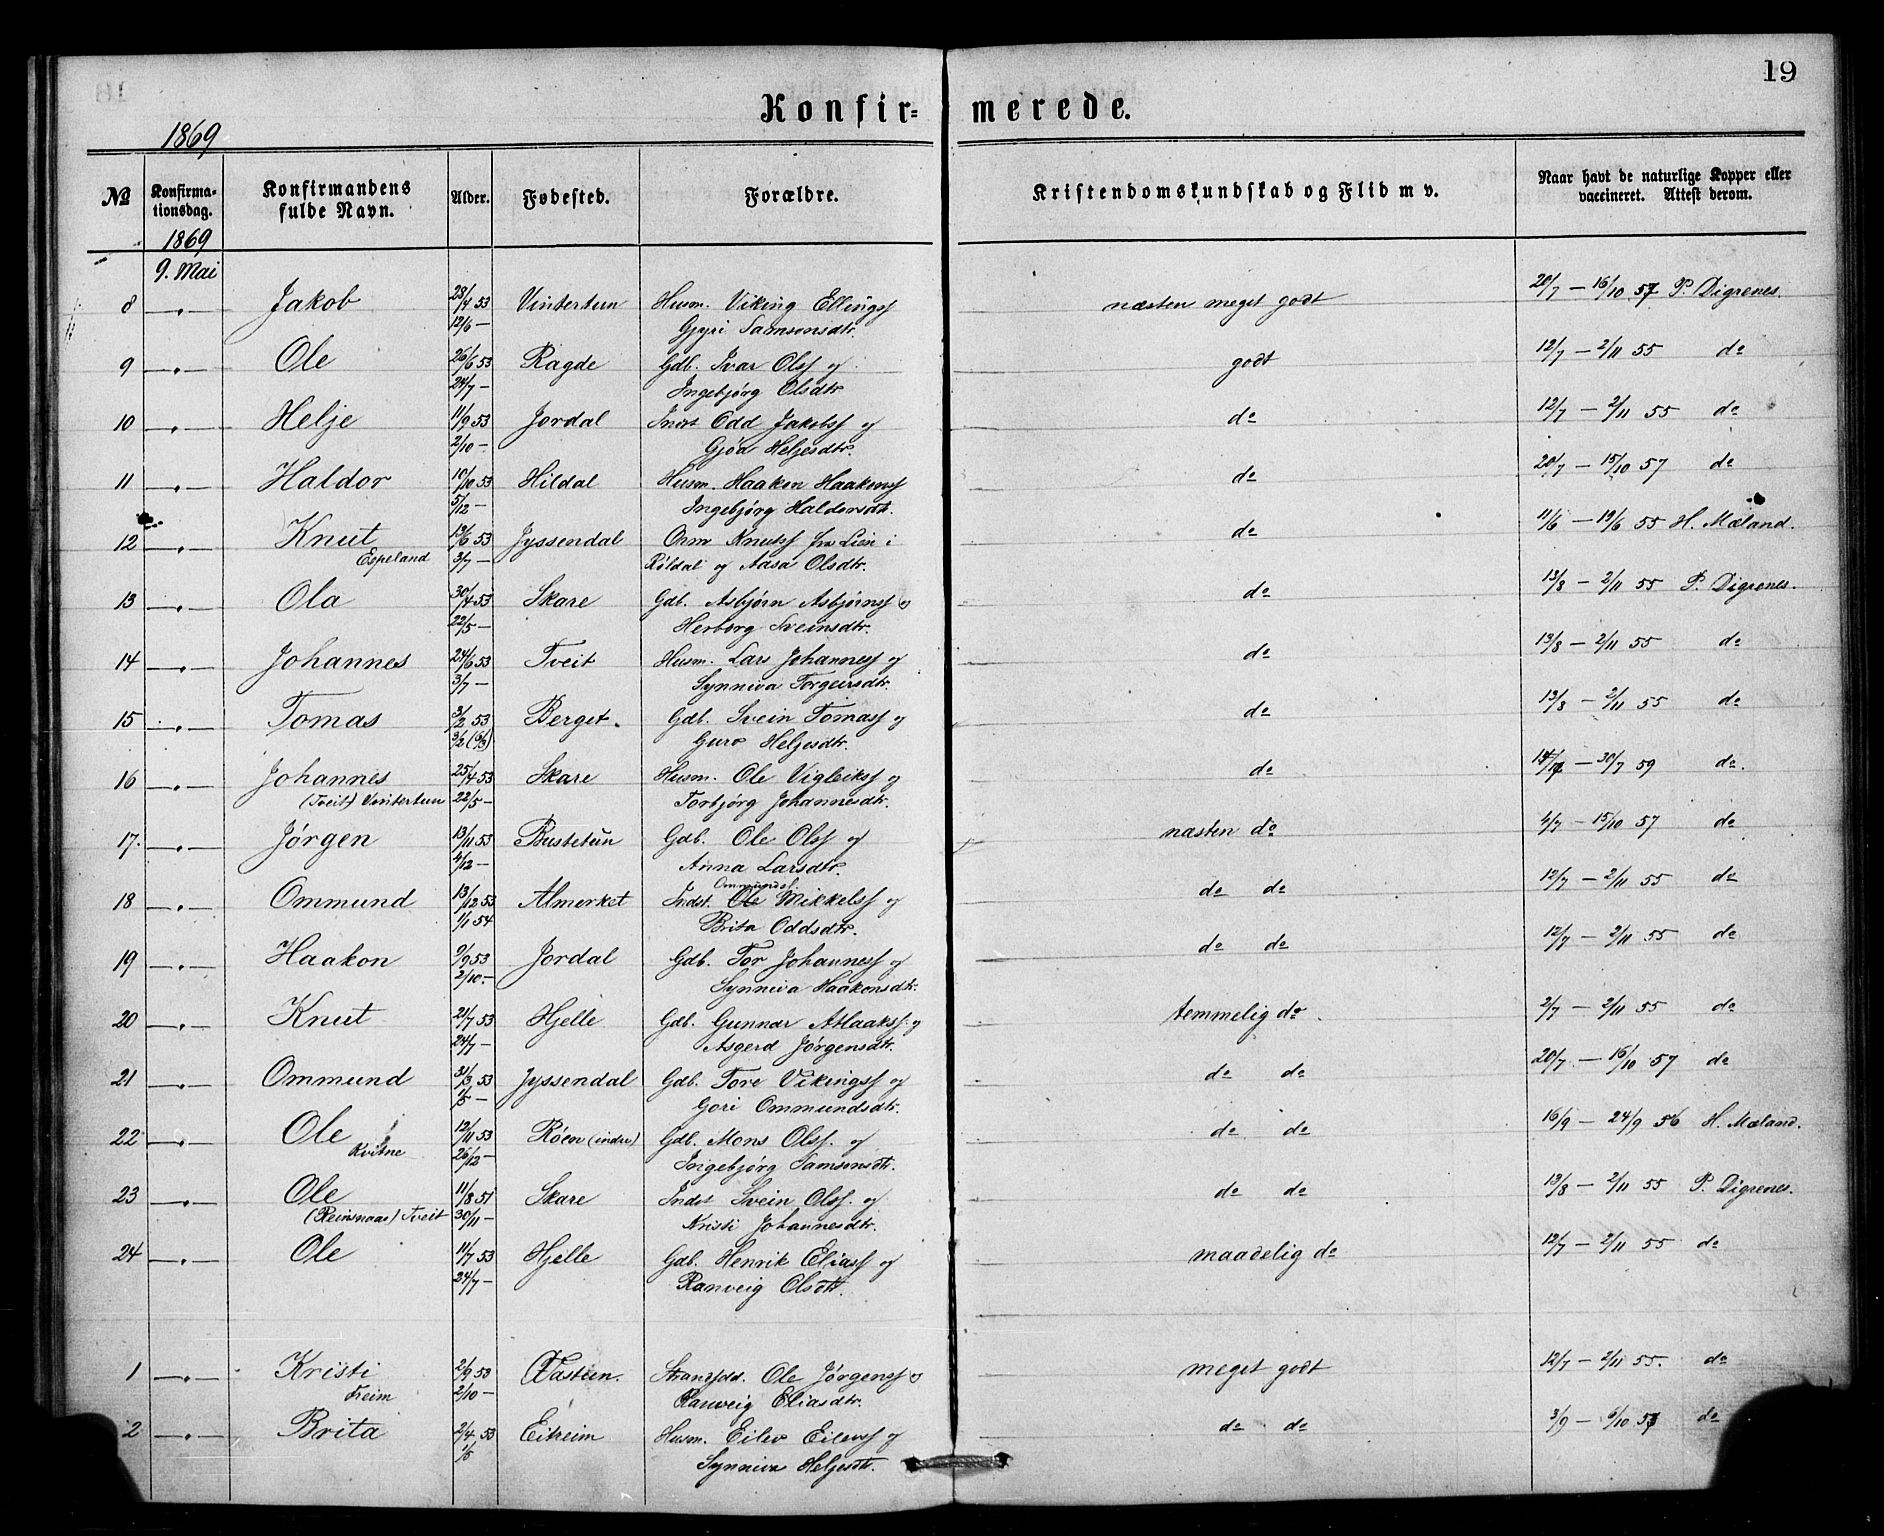 19
Konfir= merede.
1869
No Konfirma-tionsdag. Konfirmandens fulde Navn. Alder. Fødested. Forældre. Kristendomskundskab og Flid m v. Naar havt de naturlige Kopper eller vaccineret. Attest derom.
1869
9. Mai
8 —"— Jakob 28/4 53 Vintertun Husm. Viking Ellingsf næsten meget godt 20/7 — 16/10 57 P. Digrenes.
12/6 — Gjyri Samsonsdtr.
9 —"— Ole 26/6 53 Ragde Gdb. Ivar Olsf og godt 12/7 — 2/11 55 do
24/7 — Ingebjørg Olsdtr.
10 —"— Helje 11/9 53 Jordal Inst Odd Jakobsf og do 12/7 — 2/11 55 do
2/10 — Gjøa Heljesdtr.
11 —"— Haldor 10/10 53 Hildal Husm. Haakon Haakonsf do 20/7 — 15/10 57 do
5/12 — Ingebjørg Haldorsdtr.
12 —"— Knut 13/6 53 Jyssendal Orm Knutsf fra Lien i do 11/6 — 19/6 55 H. Mæland.
Espeland 3/7 — Røldal og Aasa Olsdtr.
13 —"— Ola 30/4 53 Skare Gdb. Asbjørn Asbjørnsf og do 13/8 — 2/11 55 P. Digrenes.
22/5 — Herborg Sveinsdtr.
14 —"— Johannes 24/6 53 Tveit Husm. Lars Johannesf og do 13/8 — 2/11 55 do
3/7 — Synniva Torgeirsdtr.
15 —"— Tomas 3/2 53 Berget. Gdb. Svein Tomasf og do 13/8 — 2/11 55 do
Guro Heljesdtr.
16 —"— Johannes 25/4 53 Skare Husm. Ole Vigleiksf og do — 30/7 59 do.
(Tveit) Vintertun 22/5 — Torbjørg Johannesdtr.
17. —"— Jørgen 13/11 53 Bustetun Gdb. Ole Olsf og næsten do 4/7 — 15/10 57 do
4/12 — Anna Larsdtr.
Ommundsf.
18 —"— Ommund 13/12 53 Almerket Indst. Ole Mikkelsf og do do 12/7 — 2/11 55 do
1/1 54 Brita Oddsdtr.
19 —"— Haakon 9/9 53 Jordal Gdb. Tor Johannesf og do do 12/7 — 2/11 55 do
2/10 — Synniva Haakonsdtr.
20 —"— Knut 21/7 53 Hjelle Gdb. Gunnar Aslaksf. og temmelig do 2/7 — 2/11 55 do
24/7 — Asgerd Jørgensdtr.
21 —"— Ommund 31/3 53 Jyssendal Gdb. Tore Vikingsf og do do 20/7 — 16/10 57 do
1/5 — Gori Ommundsdtr.
22 —"— Ole 12/11 53 Røen (indre) Gdb. Mons Olsf. og do do 16/9 — 24/9 56 H. Mæland.
Kvitne 26/12 — Ingebjørg Samsonsdtr.
23 —"— Ole 11/8 51 Skare Indst Svein Olsf. og do do 13/8 — 2/11 55 P. Digrenes.
(Reinsnaas) Tveit 30/11 — Kristi Johannesdtr.
24 —"— Ole 11/7 53 Hjelle Gdb. Henrik Eliasf og maadelig do 12/7 — 2/11 55 do
24/7 — Ranveig Olsdtr.
1 —"— Kristi 2/9 53 Vastun. Strandsdd. Ole Jørgensf og meget godt 12/7 — 2/11 55. do
Freim 2/10 — Ranveig Eliasdtr.
2 —"— Brita 2/4 53 Eitreim Husm. Eilev Eilevsf og do do 3/9 — 6/10 57 do
1/5 Synniva Heljesdtr.